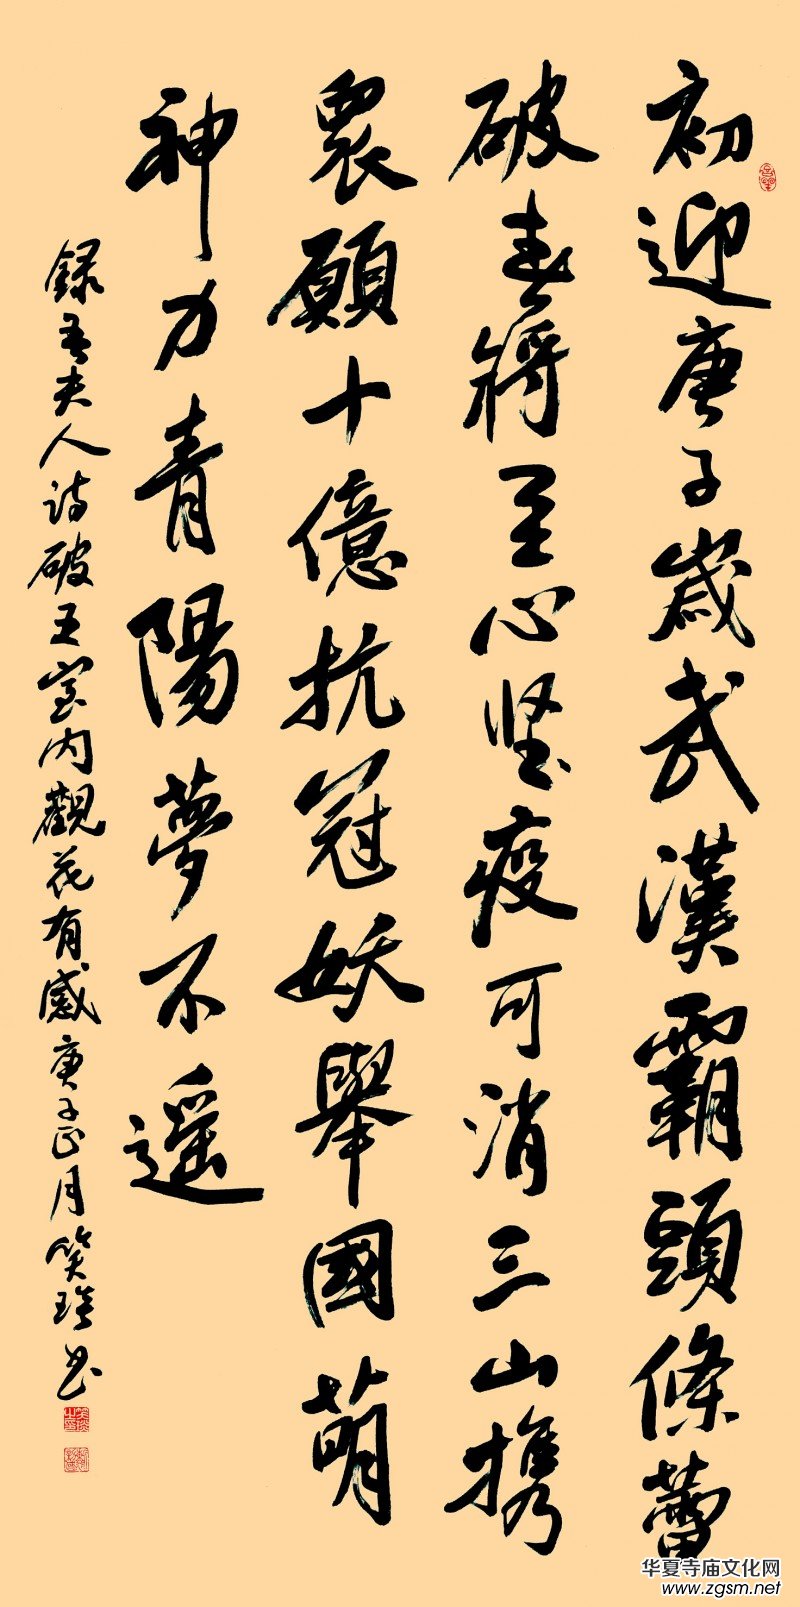 初迎庚子歲武漢霸頭條蕾
破春將至心堅疫可消三山携
衆願十億抗冠妖舉國萌
神力青陽夢不遥
錄吾夫人詩破五室内觀花有感庚子正月笑瑢书
华夏寺庙文化网
www.zgsm.net